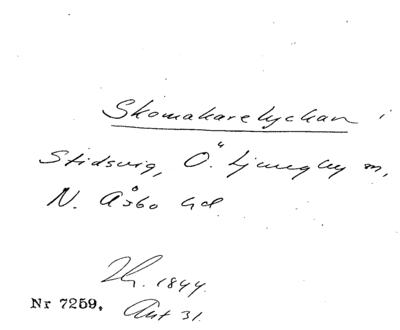 Skomakarelyckan i
Stidsvig, Ö. Ljungby sn,
N. Åsbo hd
1844.
Nr 7259. Akt 31.